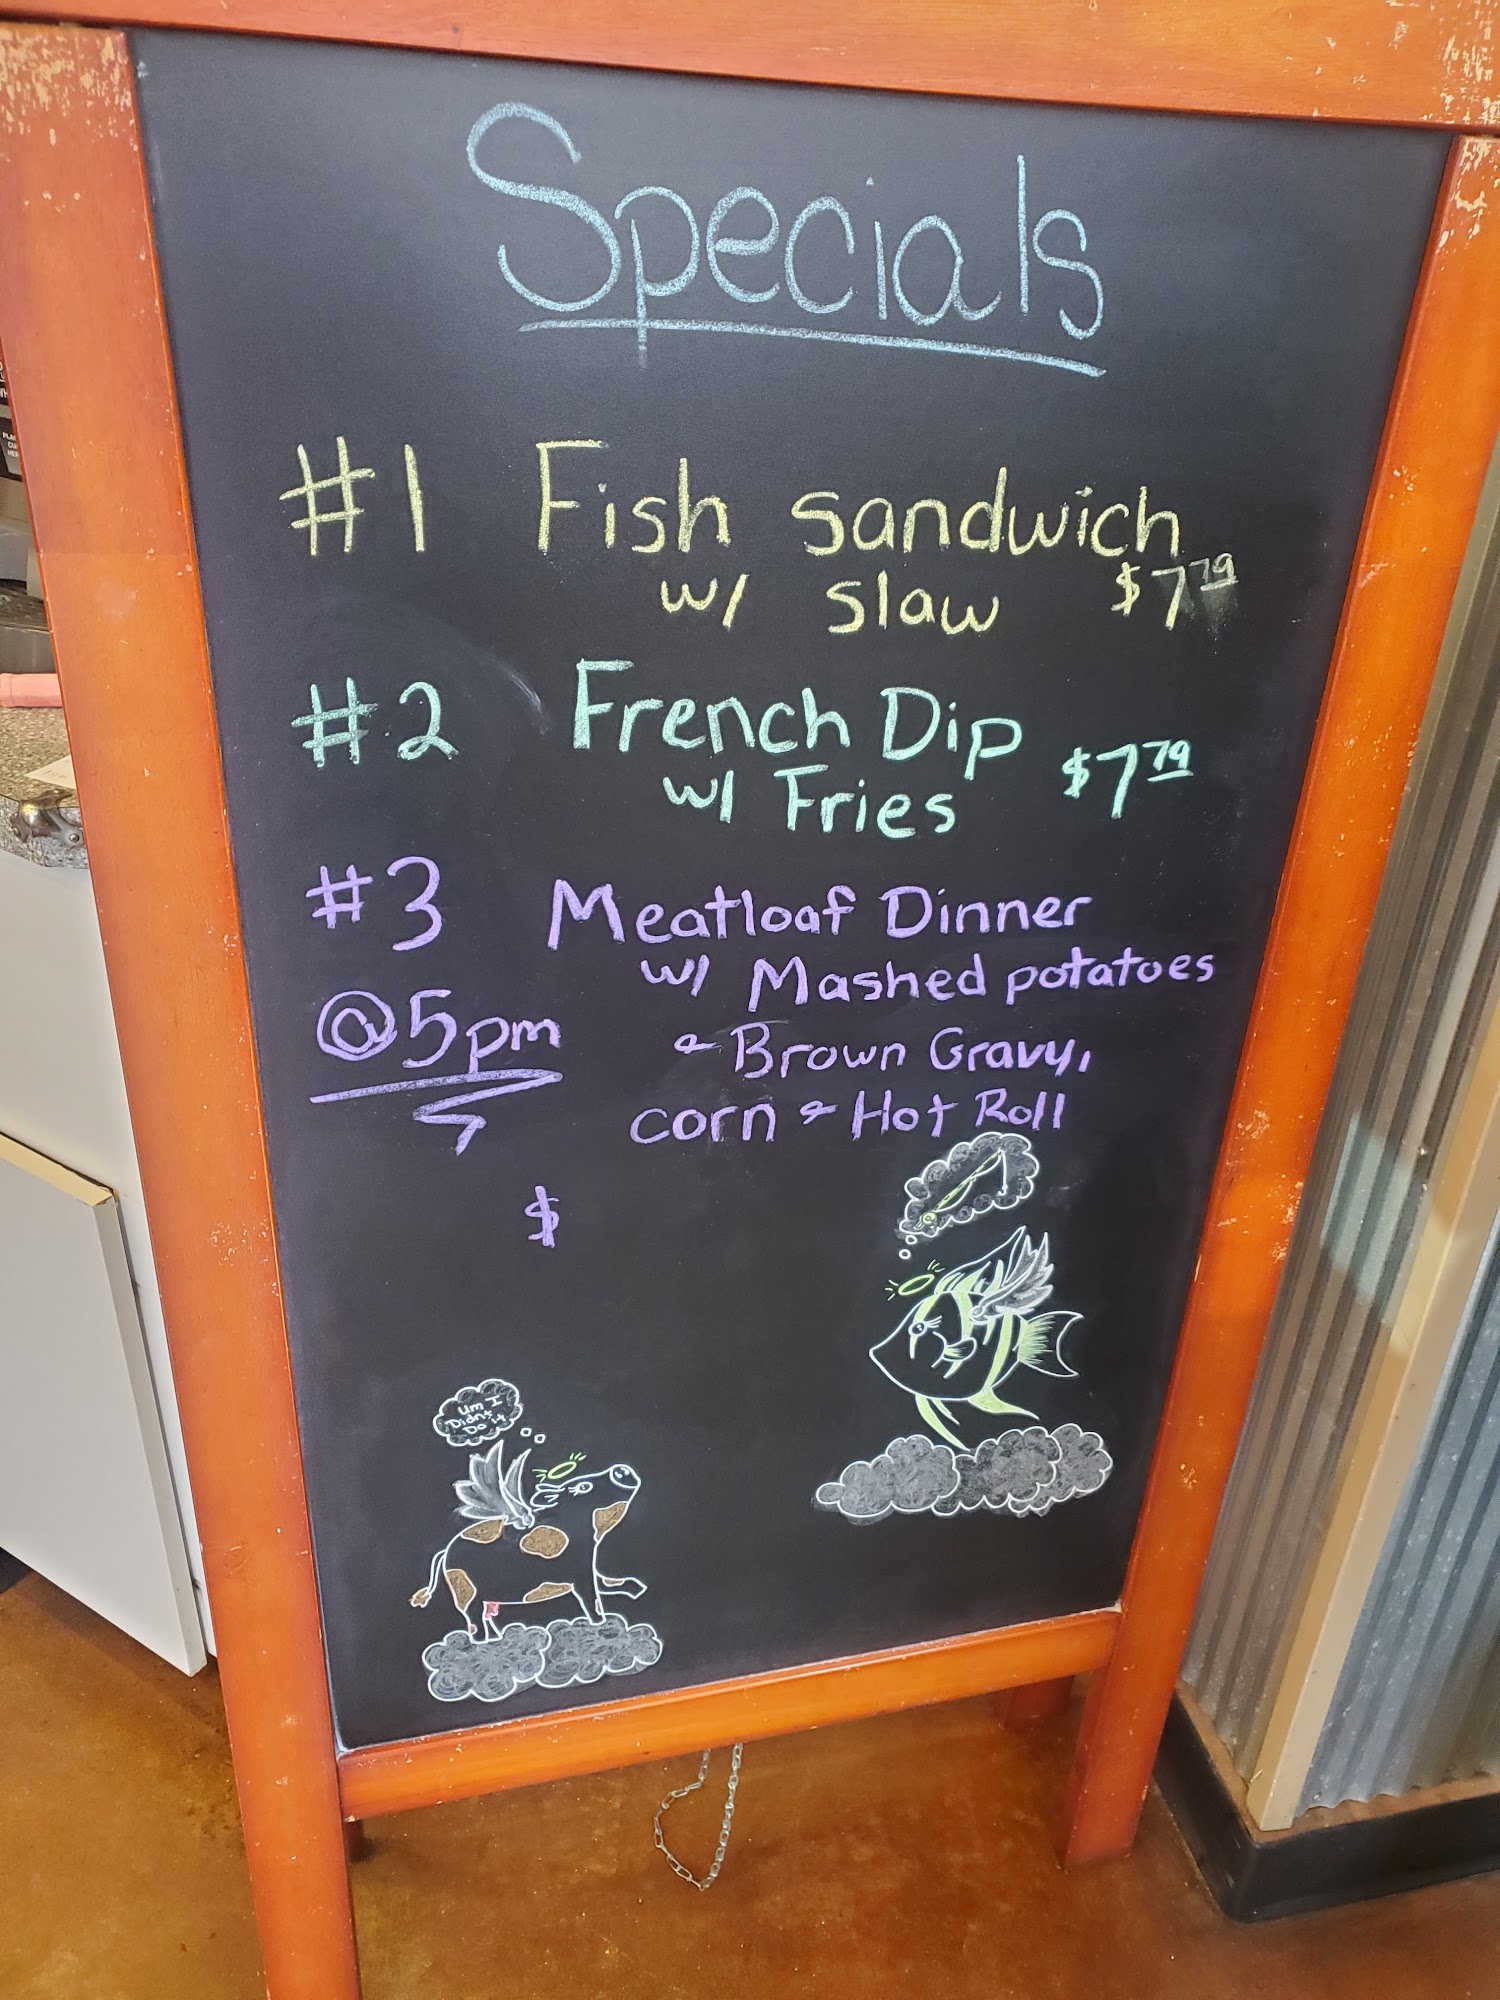 Specials
#1 Fish sandwich
w/ slaw $7.79
#2 French Dip
w/ Fries $7.79
#3 Meatloaf Dinner
w/ Mashed potatoes
@5pm & Brown Gravy,
corn & Hot Roll
$
um I
Didn't
Do it